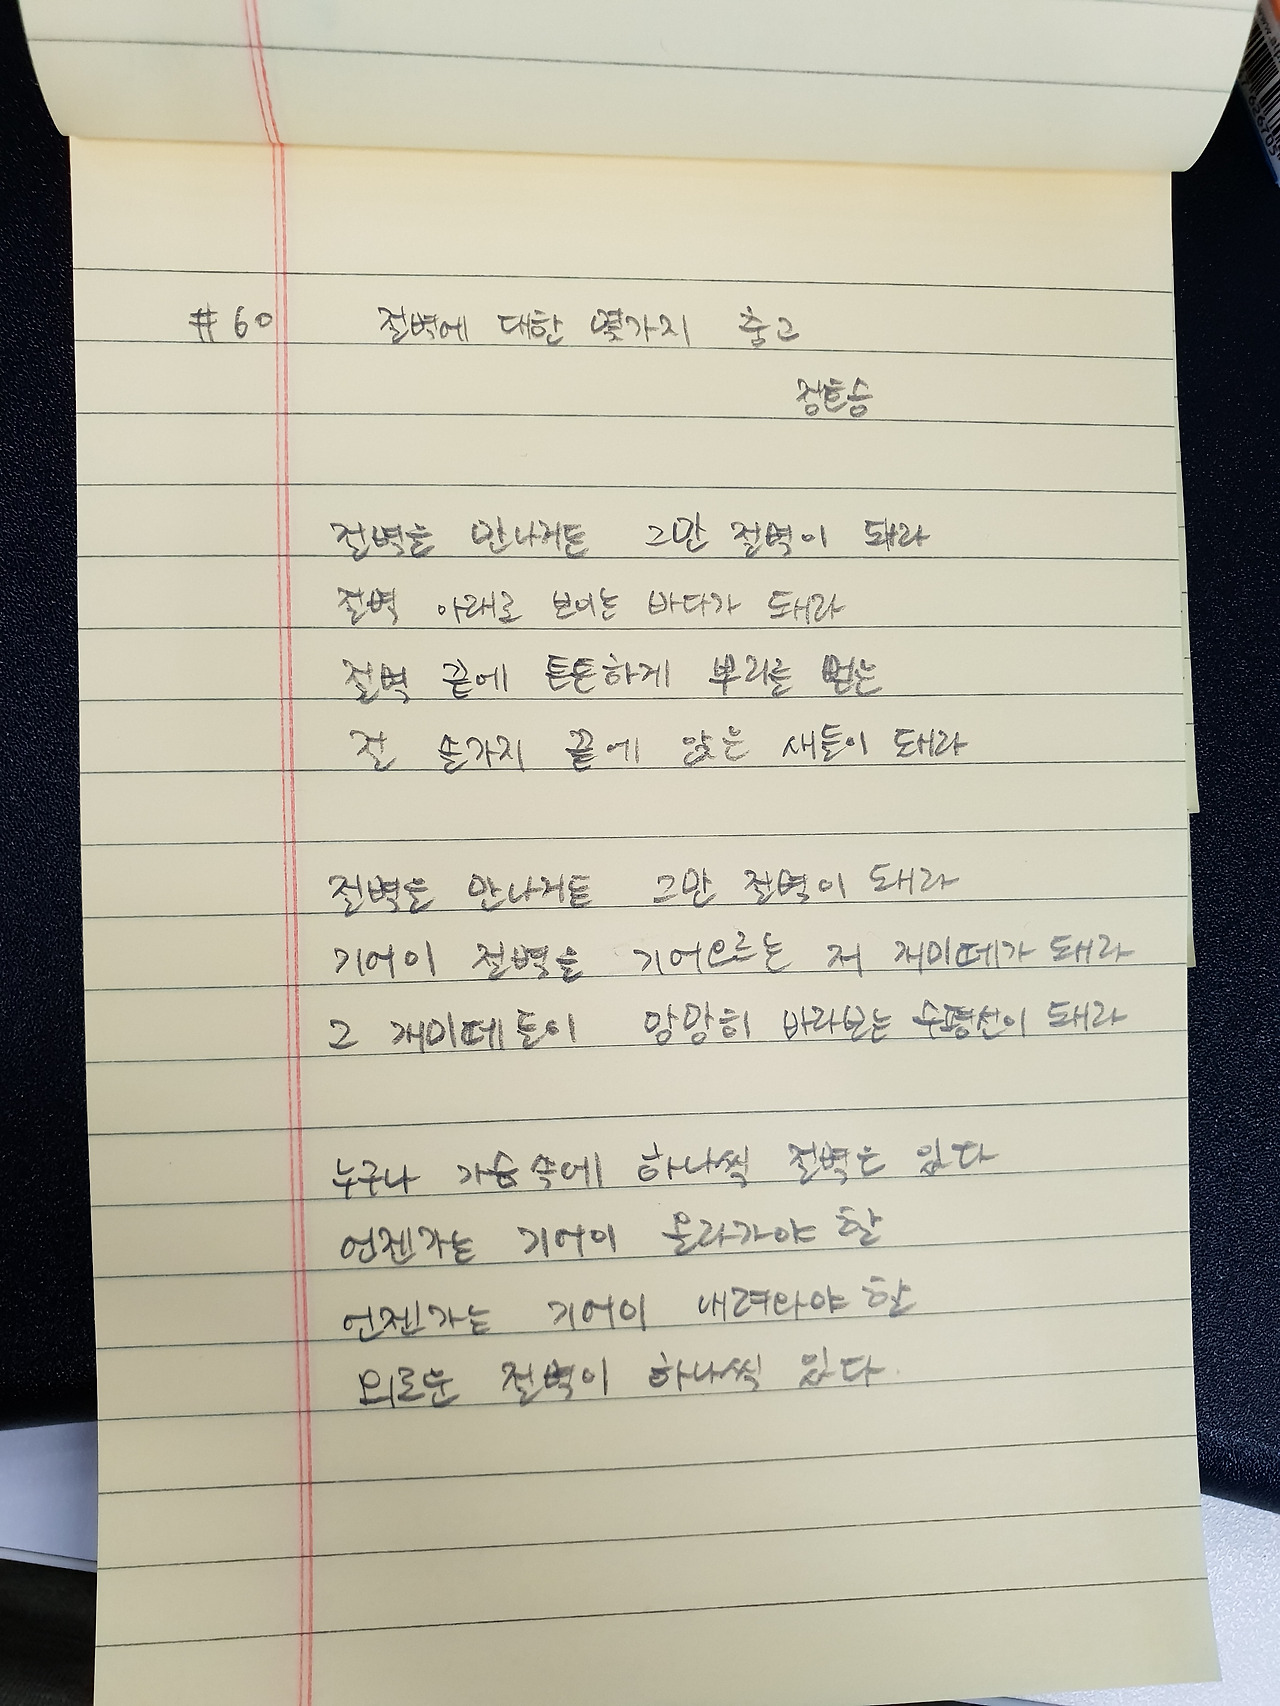 #60 절벽에 대한 몇가지 충고
정호승
절벽을 만나거든 그만 절벽이 돼라
절벽 아래로 보이는 바다가 돼라
절벽 끝에 튼튼하게 뿌리를 뻗는
저 솔가지 끝에 앉은 새들이 돼라
절벽을 만나거든 그만 절벽이 돼라
기어이 절벽을 기어오르는 저 개미떼가 돼라
그 개미떼들이 망망히 바라보는 수평선이 돼라
누구나 가슴속에 하나씩 절벽은 있다
언젠가는 기어이 올라가야 할
언젠가는 기어이 내려와야 할
외로운 절벽이 하나씩 있다.